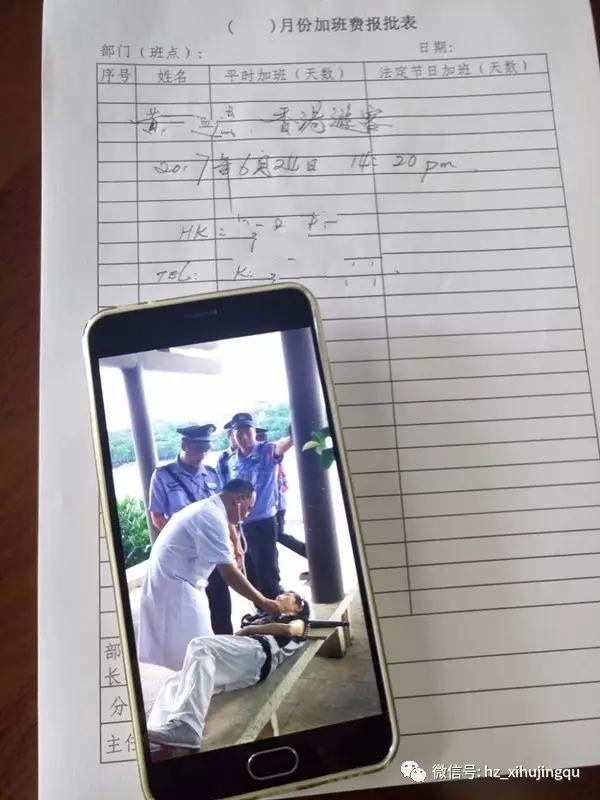 (      )月份加班费报批表
部门（班点）：  日期：
序号 姓名 平时加班（天数） 法定节日加班（天数）
香港游客
2017年6月24日 14:20 pm.
HK:
TEL:
部
长
分
主任
微信号: hz_xihujingqu